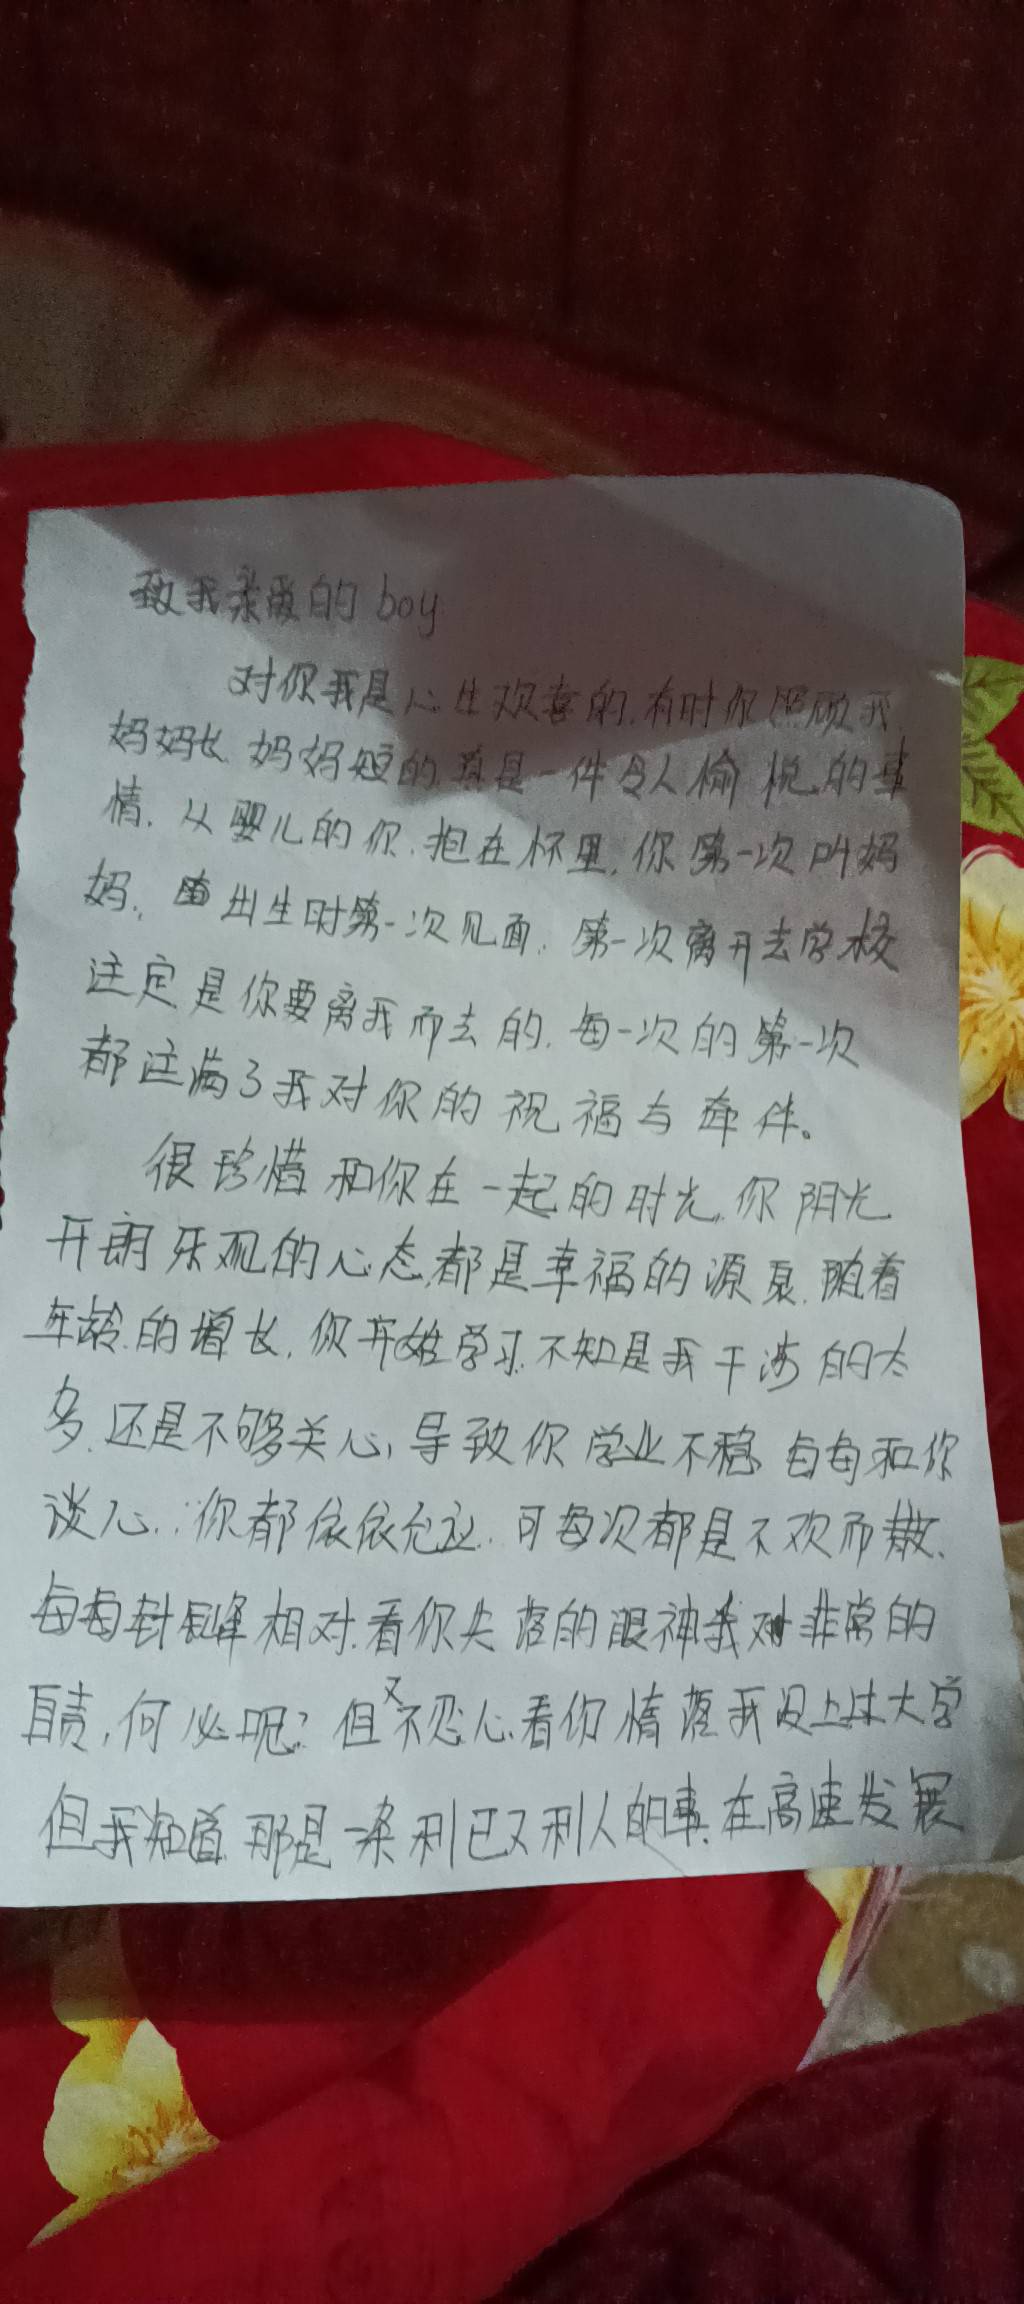 致我亲爱的 boy
对你我是心生欢喜的.有时你照顾我.
妈妈长.妈妈短的.真是一件令人愉悦的事
情.从婴儿的你.抱在怀里.你第一次叫妈
妈.,出生时第一次见面.第一次离开去学校
注定是你要离我而去的.每一次的第一次
都注满了我对你的祝福与牵伴。
很珍惜和你在一起的时光.你阳光
开朗乐观的心态.都是幸福的源泉.随着
年龄.的增长.你开始学习.不知是我干涉的太
多.还是不够关心,导致你学业不稳.每每和你
谈心.:你都依依允应.:可每次都是不欢而散.
每每针锋相对.看你失落的眼神我对非常的
自责,何必呢?但又不忍心.看你惰落我没上过大学
但我知道.那是一条利已又利人的事.在高速发展